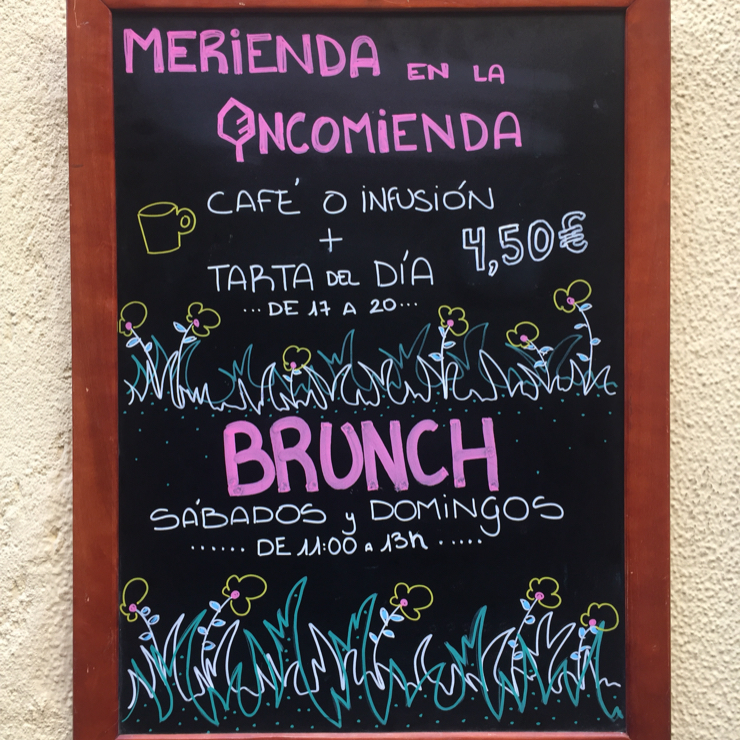 MERIENDA EN LA
ENCOMIENDA
CAFÉ O INFUSIÓN
+
4,50€
TARTA DEL DÍA
... DE 17 A 20 ...
BRUNCH
SÁBADOS y DOMINGOS
...... DE 11:00 a 13h .....